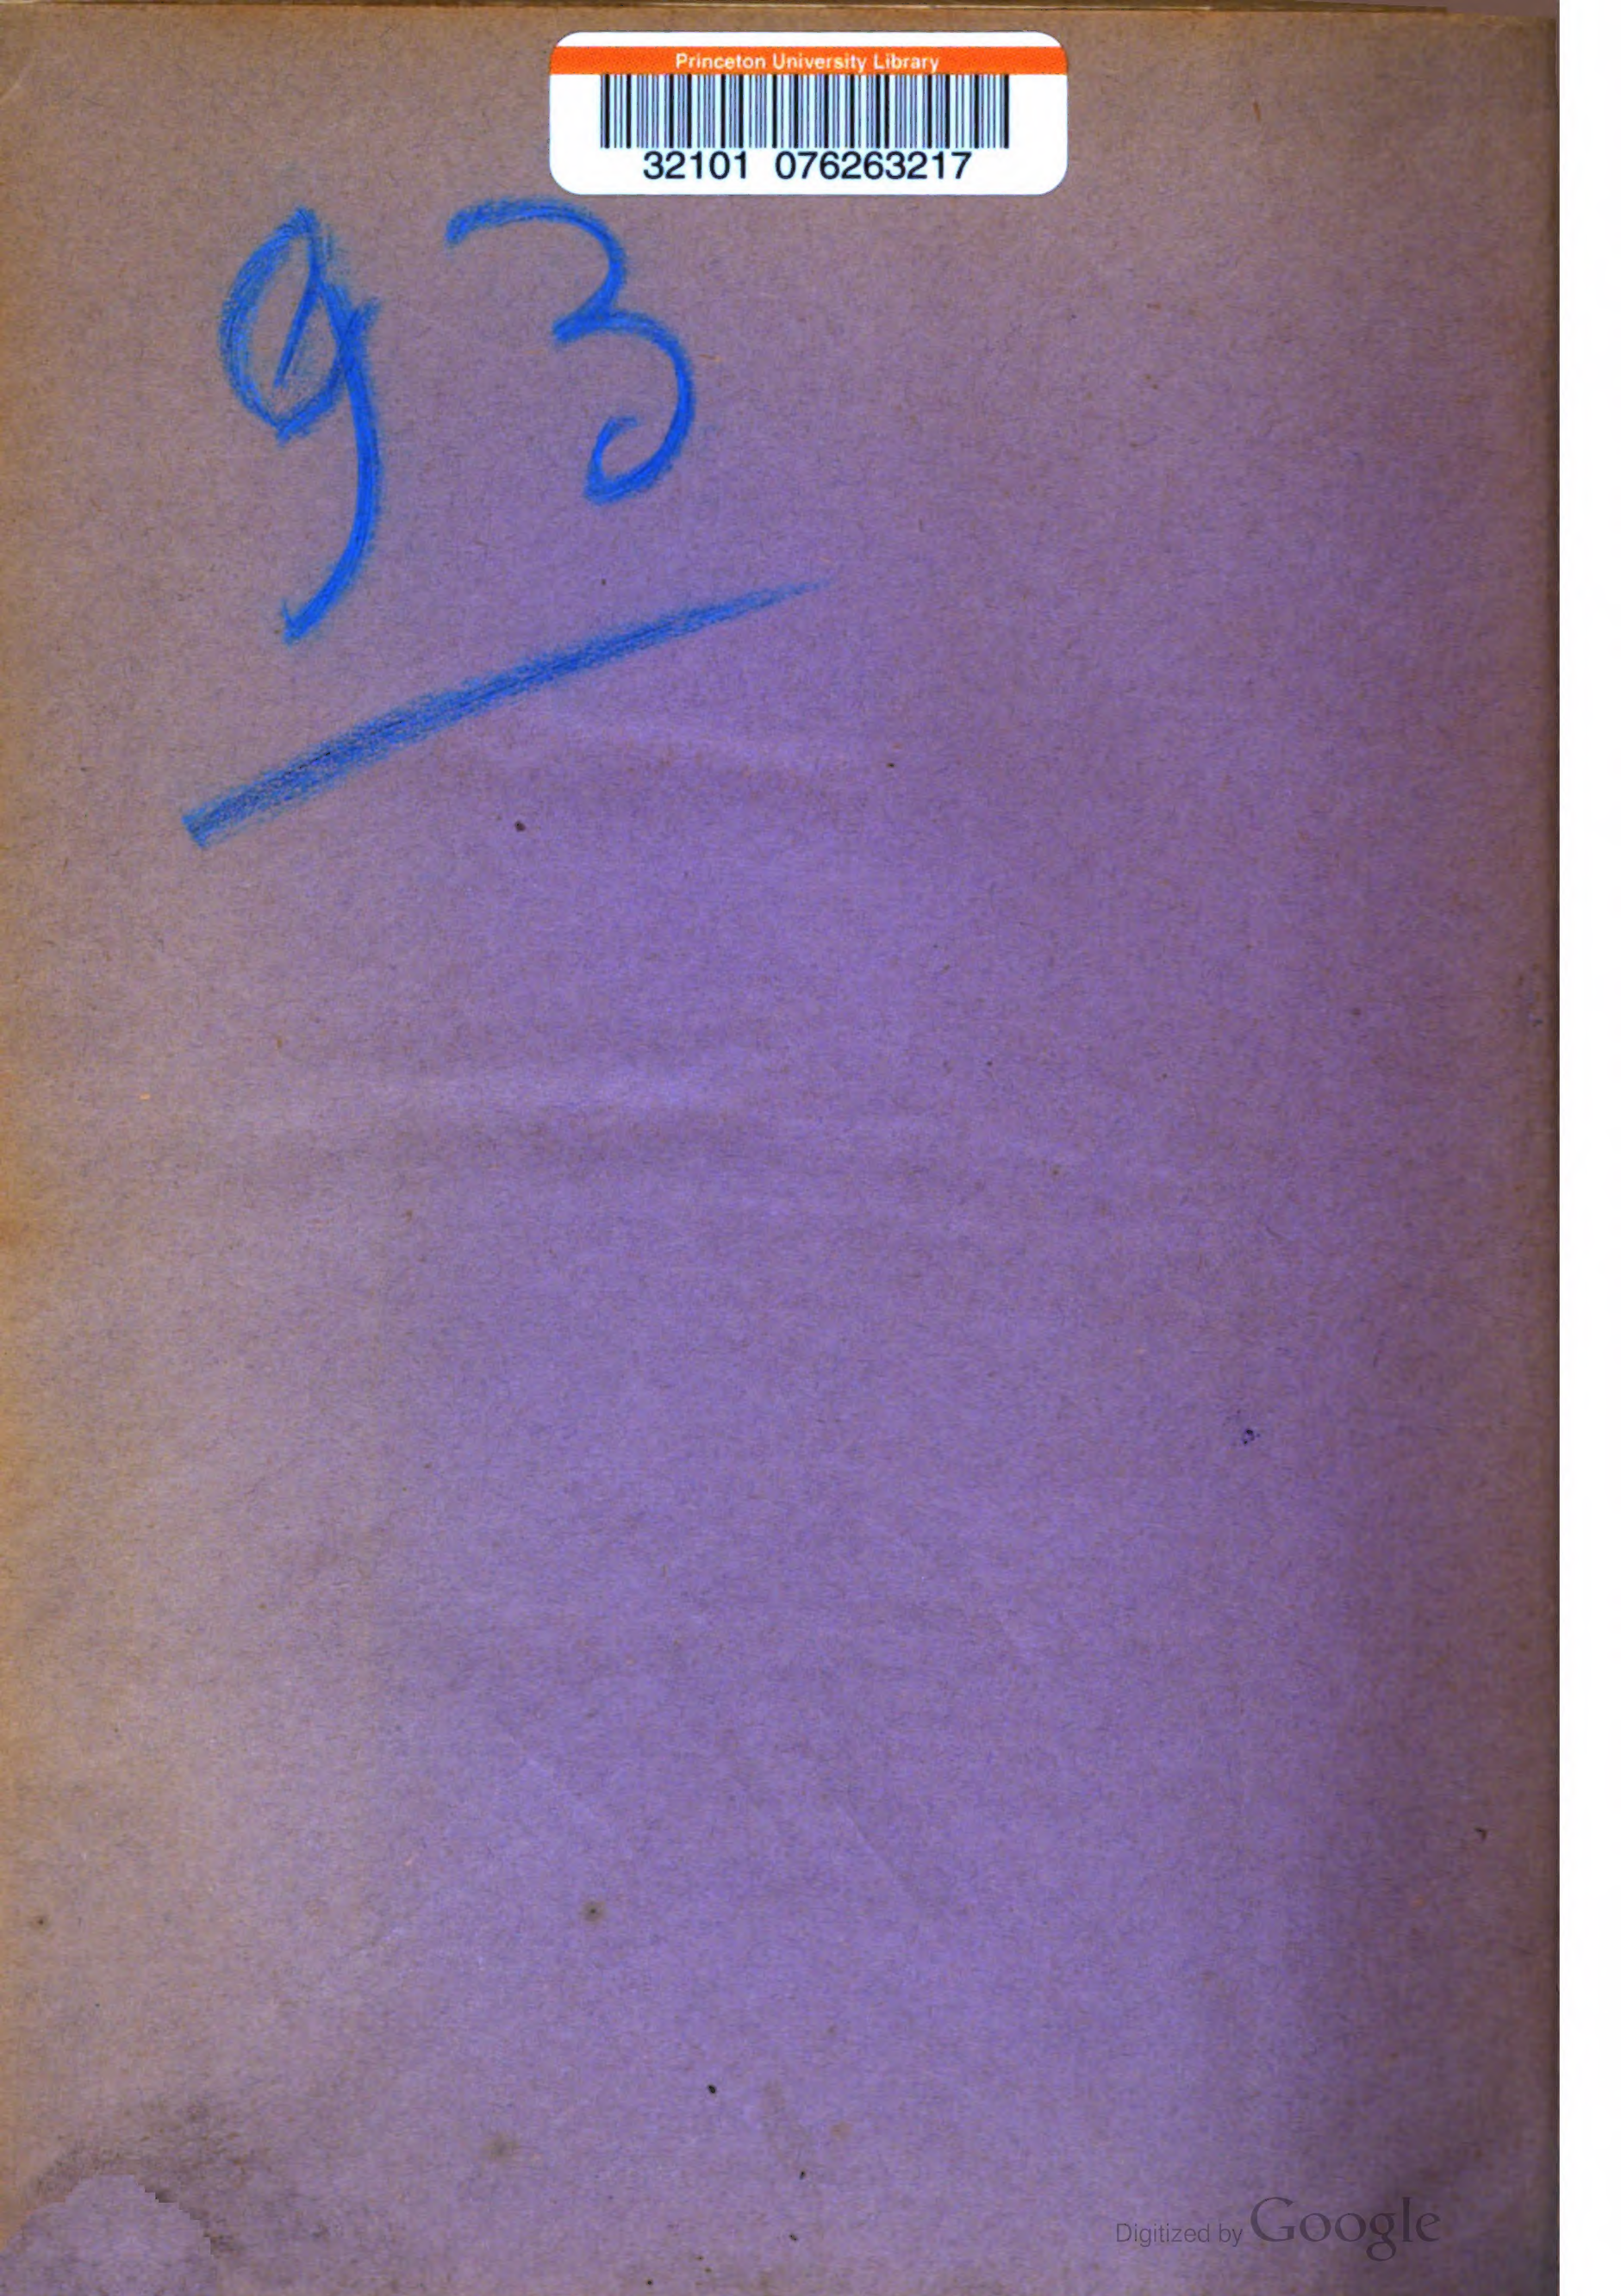 Princeton University Library
32101 076263217
93
Digitized by Google